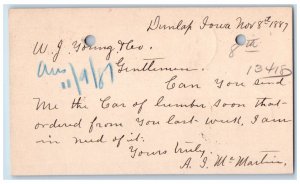 Dunlap Iowa Nov 8th 1887
W. J. Young & Co.
8th
Ans 11/9/87
Gentlemen.
13418
Can You send
Me the Car of lumber soon that
ordered from You last week, I am
in need of it.
Yours truly.
A. J. McMartin,